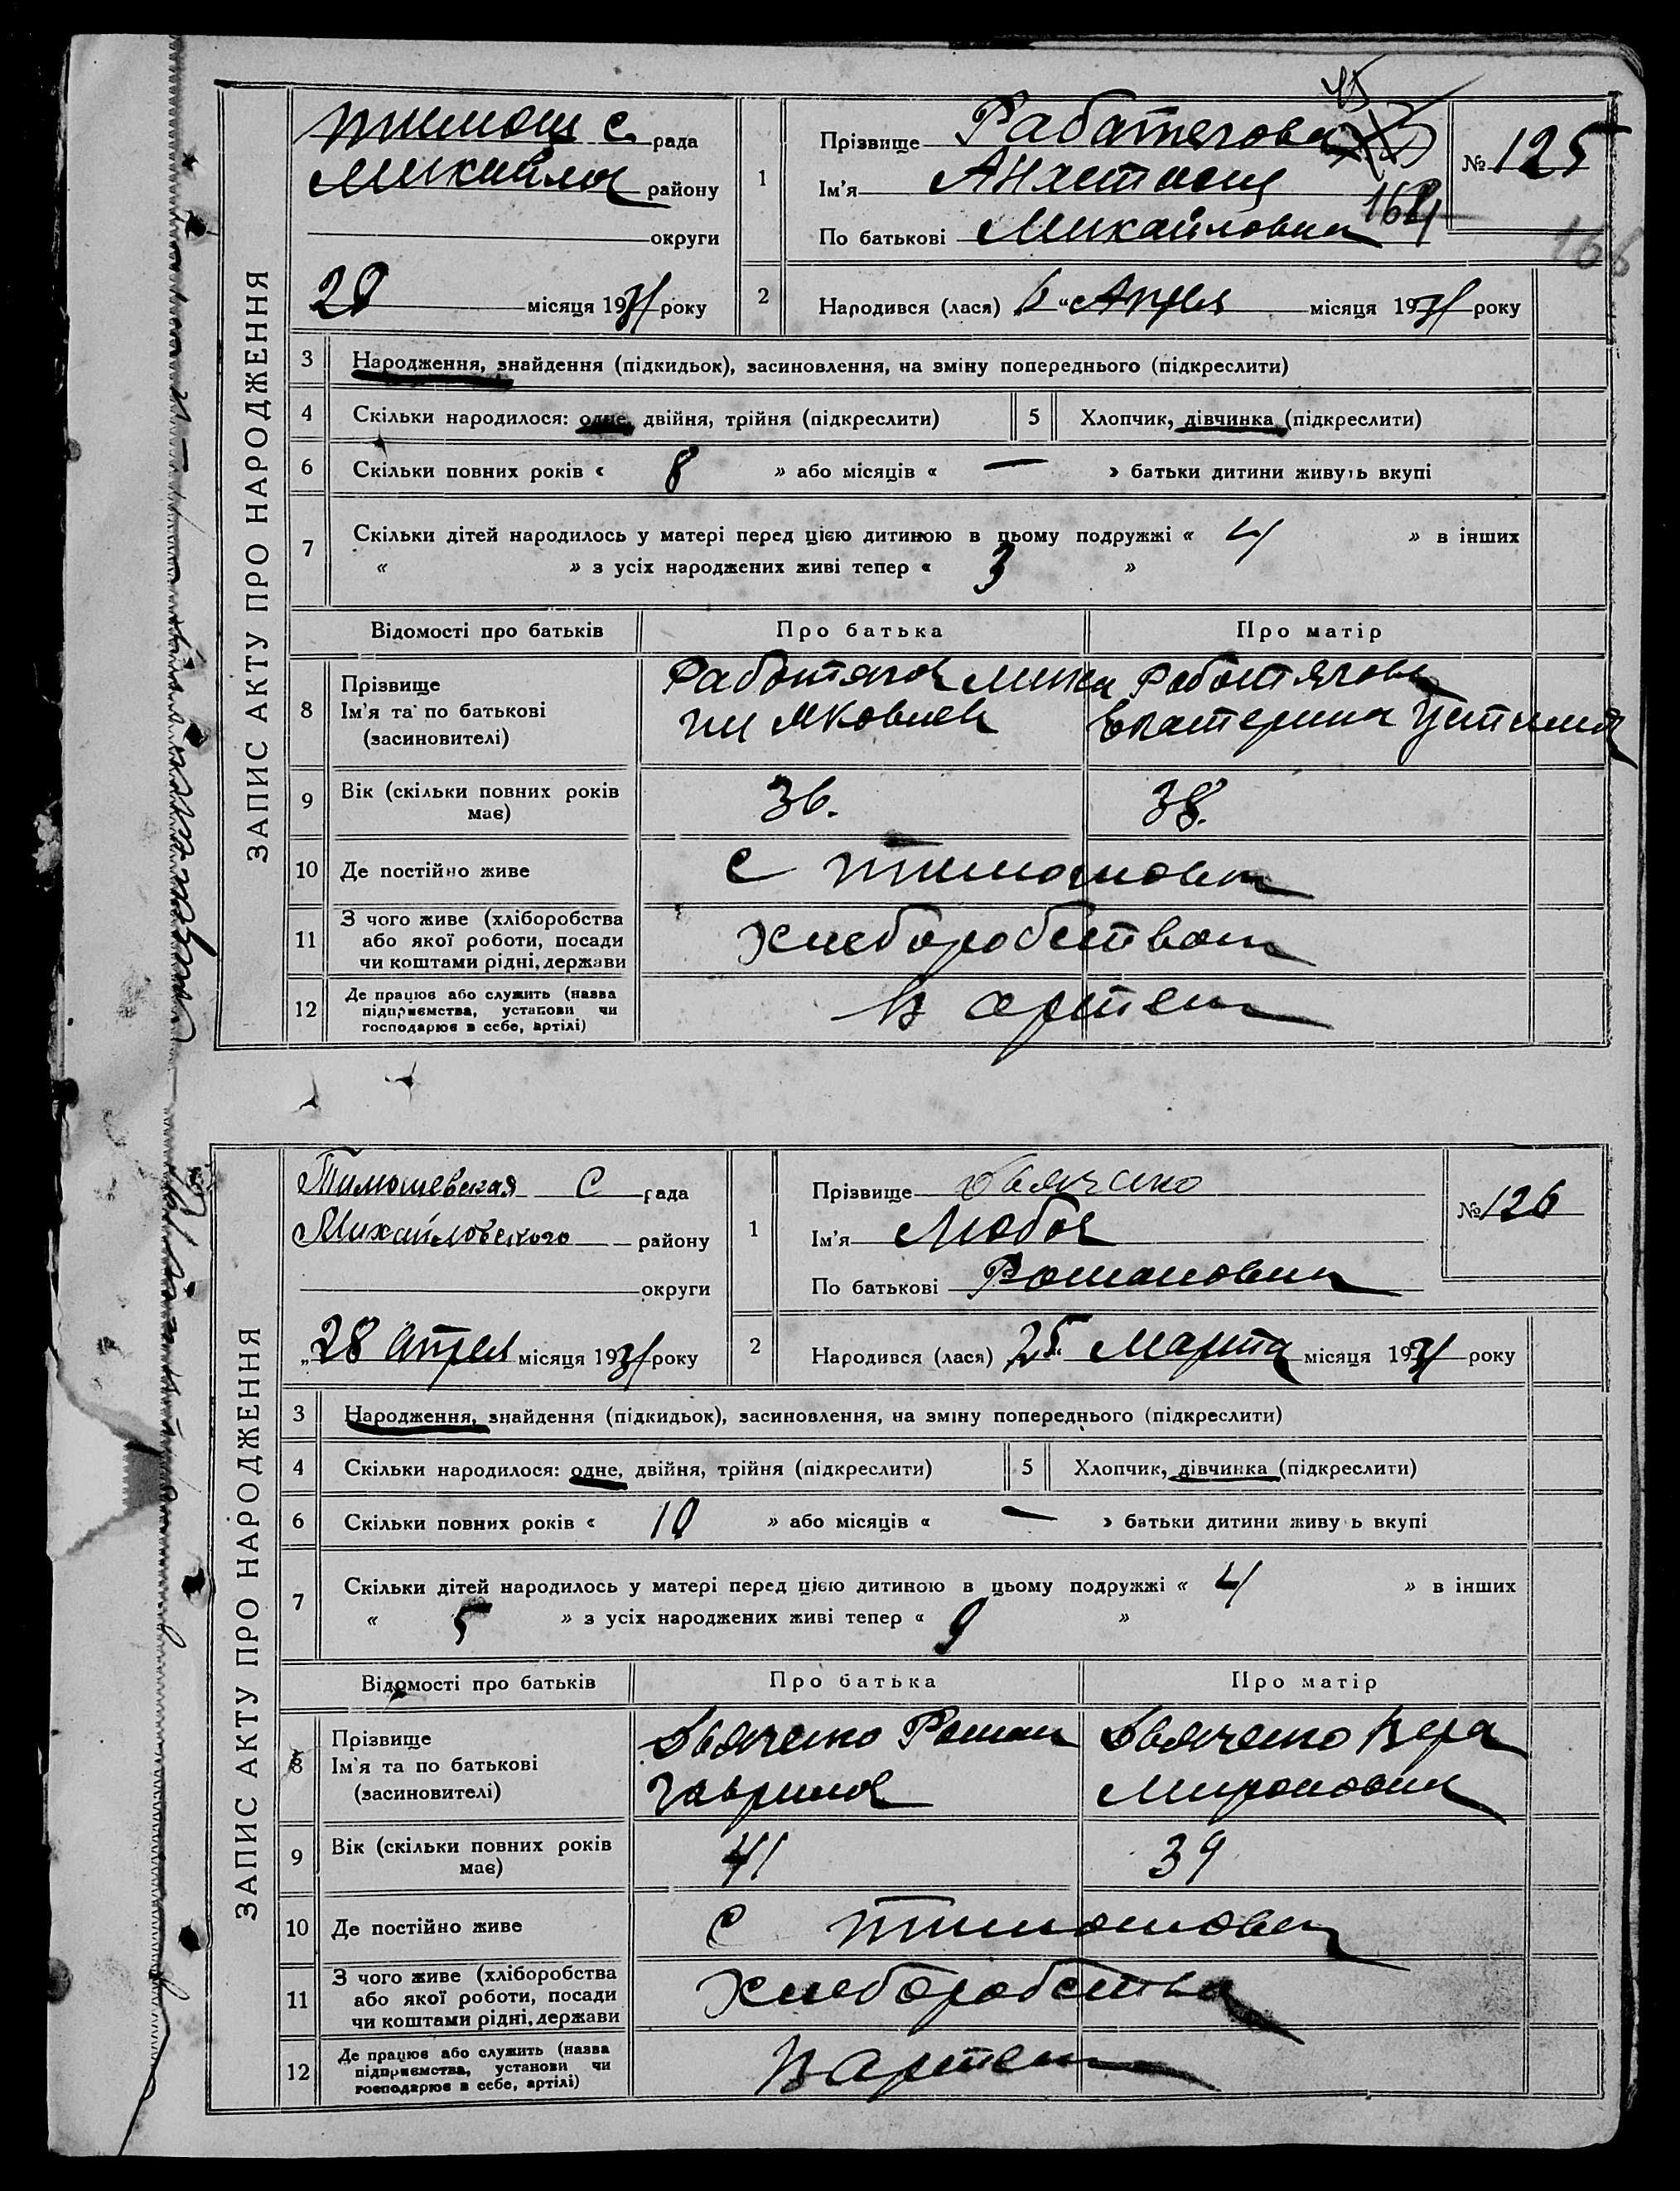 ЗАПИС АКТУ ПРО НАРОДЖЕННЯ
Тимош с. рада
Михайлов району
округи
28 місяця 1931 року
45
1 Прізвище Работягова
Ім'я
По батькові Михайловна 164
№ 125
166
2 Народився (лася) 6 " Апреля місяця 1931 року
3 Народження, знайдення (підкидьок), засиновлення, на зміну попереднього (підкреслити)
4 Скільки народилося: одне, двійня, трійня (підкреслити) 5 Хлопчик, дівчинка (підкреслити)
6 Скільки повних років « 8 » або місяців « — » батьки дитини живуть вкупі
7 Скільки дітей народилось у матері перед цією дитиною в цьому подружжі « 4 » в інших
« » з усіх народжених живі тепер « 3 »
Відомості про батьків Про батька Про матір
8 Прізвище
Ім'я та по батькові
(засиновителі)
Работягов Миха
ил Яковлев
Работягова
Екатерина Устимов
9 Вік (скільки повних років
має) 36. 38.
10 Де постійно живе с Тимошовка
11 З чого живе (хліборобства
або якої роботи, посади
чи коштами рідні, держави
Хлеборобством
12 Де працює або служить (назва
підприємства, установи чи
господарює в себе, артілі)
В артели
ЗАПИС АКТУ ПРО НАРОДЖЕННЯ
Тимошевская С рада
Михайловского району
округи
„28 Апреля місяця 1931 року
1 Прізвище Дьяченко
Ім'я Любов
По батькові Романовна
№ 126
2 Народився (лася) 25 " Марта місяця 1931 року
3 Народження, знайдення (підкидьок), засиновлення, на зміну попереднього (підкреслити)
4 Скільки народилося: одне, двійня, трійня (підкреслити) 5 Хлопчик, дівчинка (підкреслити)
6 Скільки повних років « 10 » або місяців « — » батьки дитини живу ь вкупі
7 Скільки дітей народилось у матері перед цією дитиною в цьому подружжі « 4 » в інших
« 5 » з усіх народжених живі тепер « 9 »
Відомості про батьків Про батька Про матір
8 Прізвище
Ім'я та по батькові
(засиновителі)
Дьяченко Роман
Гаврилов
Дьяченко Вера
Мироновна
9 Вік (скільки повних років
має) 41 39
10 Де постійно живе с Тимошовка
11 З чого живе (хліборобства
або якої роботи, посади
чи коштами рідні, держави
Хлеборобства
12 Де працює або служить (назва
підприємства, установи чи
господарює в себе, артілі)
В артели